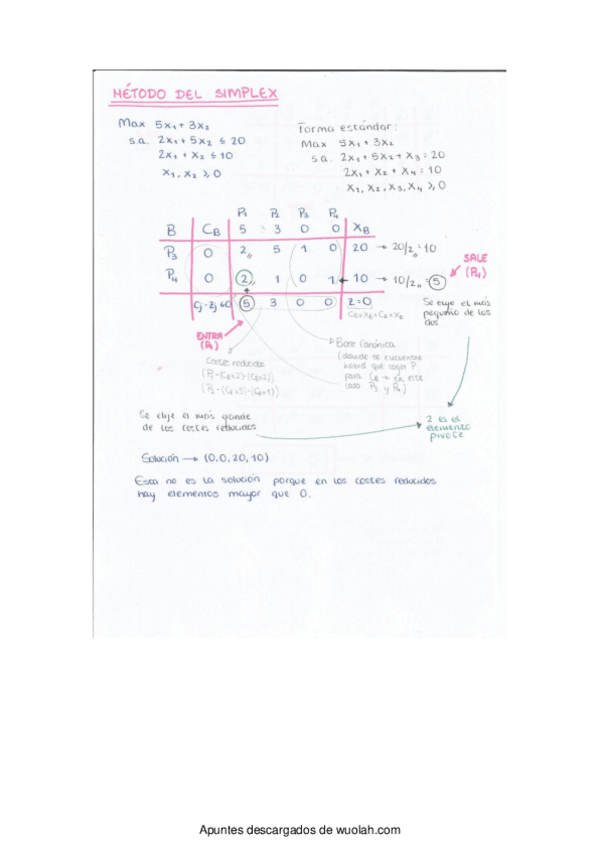 MÉTODO DEL SIMPLEX
Max 5x₁ + 3x₂
s.a. 2x₁ + 5x₂ ≤ 20
2x₁ + x₂ ≤ 10
x₁, x₂ ≥ 0
Forma estándar:
Max 5x₁ + 3x₂
s.a. 2x₁ + 5x₂ + x₃ = 20
2x₁ + x₂ + x₄ = 10
x₁, x₂, x₃, x₄ ≥ 0
P₁ P₂ P₃ P₄
B C_B 5 3 0 0 X_B
P₃ 0 2 5 1 0 20 → 20/2 = 10
P₄ 0 2 1 0 1 ← 10 → 10/2 = 5
Cj - Zj ≤ 0 5 3 0 0 Z = 0
SALE
(P₄)
Se elije el más
pequeño de los
dos
ENTRA
(P₁)
Costes reducidos
Base Canónica
(donde se encuentre
habrá que coger P
para C_B → en este
caso P₃ y P₄)
Se elije el más grande
de los costes reducidos
2 es el
elemento
pivote
Solución → (0,0,20,10)
Esta no es la solución porque en los costes reducidos
hay elementos mayor que 0.
Apuntes descargados de wuolah.com